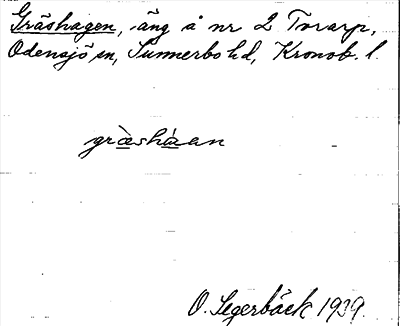 Gräshagen, äng å nr 2 Torarp,
Odensjö sn, Sunnerbo hd, Kronob. l.
gràeshàan
O. Segerbäck 1939.